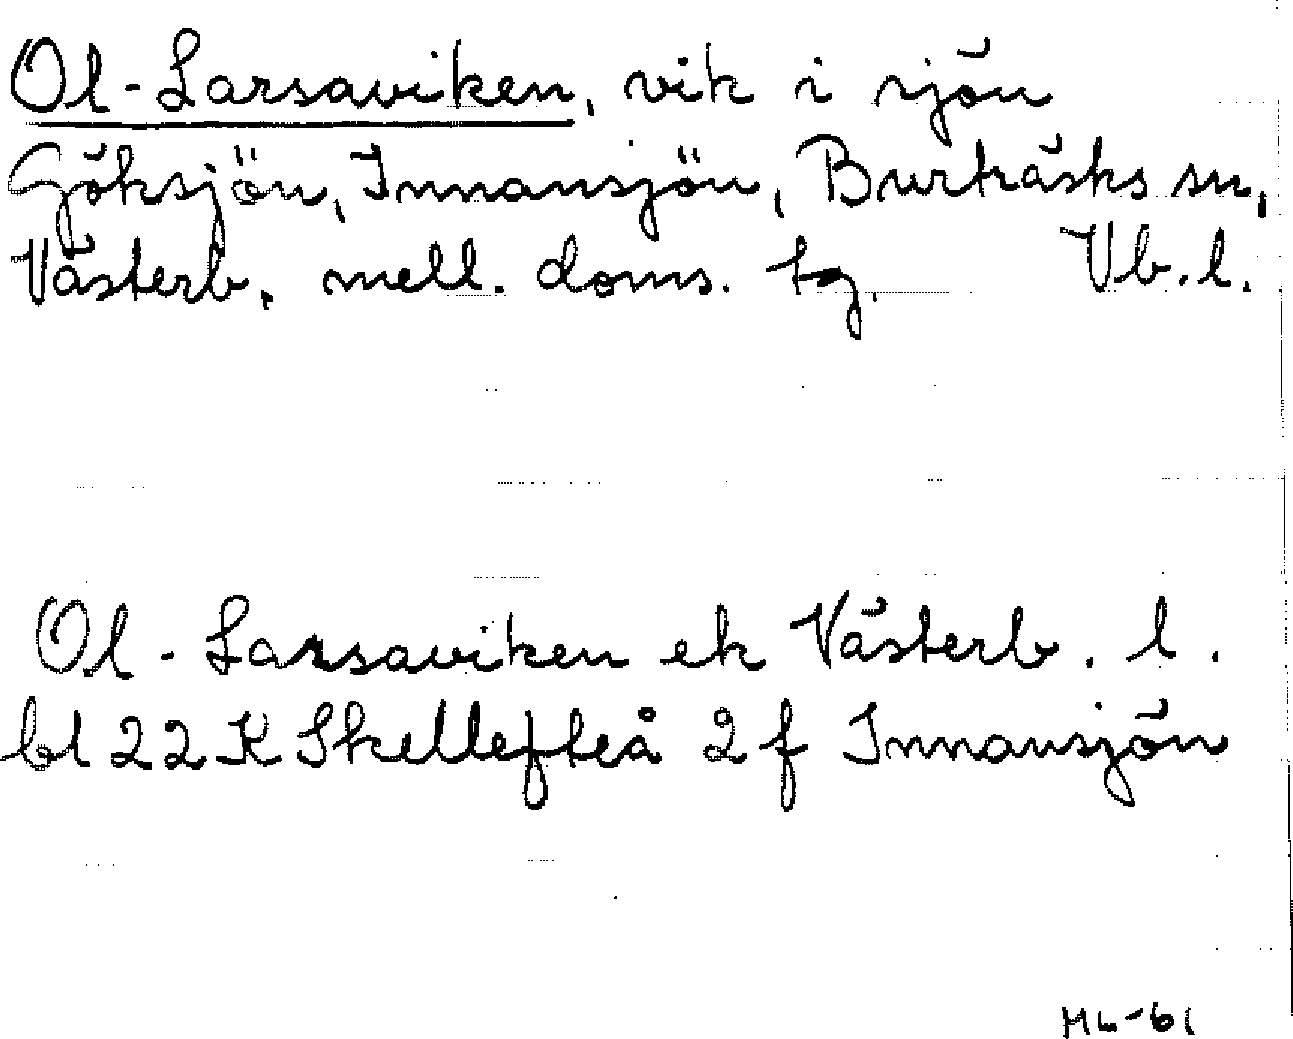 Ol-Larsaviken, vik i sjön
Göksjön, Innansjön, Burträsks sn,
Västerb. mell. doms. tg. Vb.l.
Ol-Larsaviken ek Västerb. l.
bl 22 K Skellefteå 2 f Innansjön
HL-61